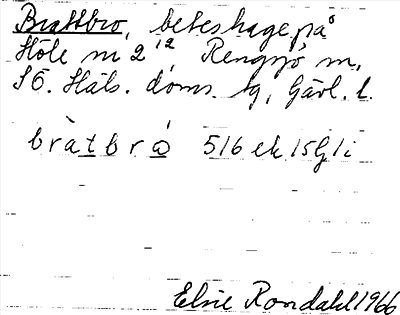 Brattbro, beteshage på
Höle nr 2¹², Rengsjö sn,
SÖ. Häls. doms. tg, Gävl. l.
bràt̲bró̲ 516 ek 15G1i
Elsie Rondahl 1966